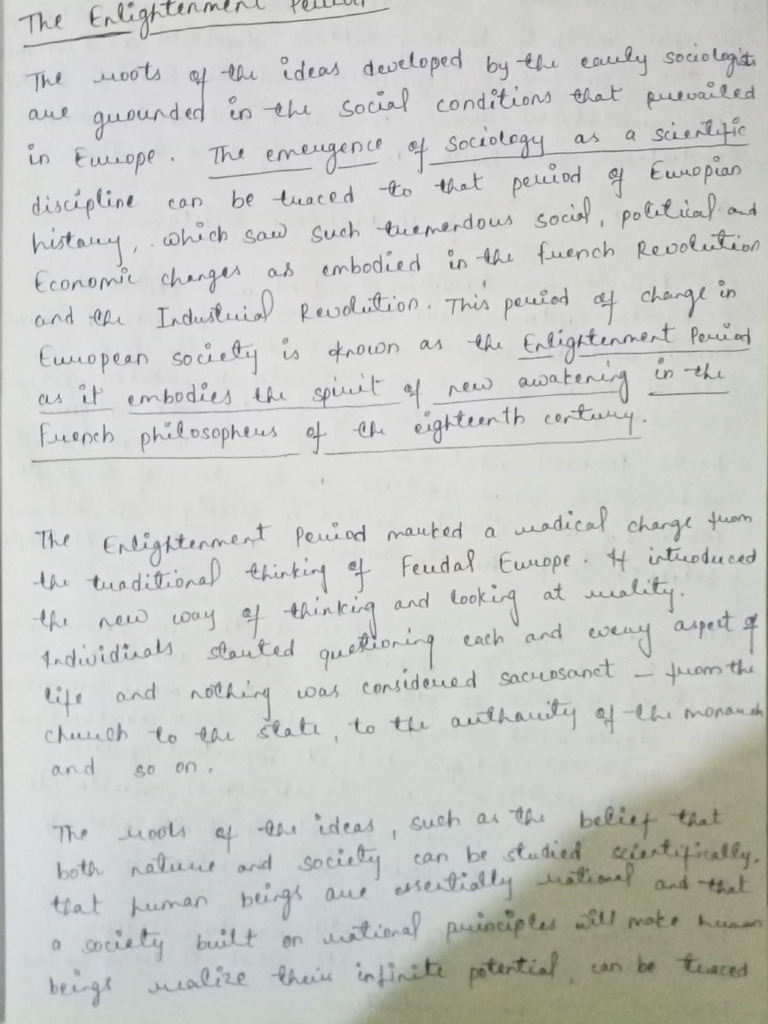 The Enlightenment Period
The roots of the ideas developed by the early sociologists
are grounded in the social conditions that prevailed
in Europe. The emergence of sociology as a scientific
discipline can be traced to that period of Europian
history, which saw such tremendous social, political and
Economic changes as embodied in the french Revolution
and the Industrial Revolution. This period of change in
European society is known as the Enlightenment Period
as it embodies the spirit of new awakening in the
French philosophers of the eighteenth century.
The Enlightenment Period marked a radical change from
the traditional thinking of Feudal Europe. It introduced
the new way of thinking and looking at reality.
Individuals started questioning each and every aspect of
life and nothing was considered sacrosanct – from the
church to the state, to the authority of the monarch
and so on.
The roots of the ideas, such as the belief that
both nature and society can be studied scientifically,
that human beings are essentially rational and that
a society built on rational principles will make human
beings realize their infinite potential, can be traced